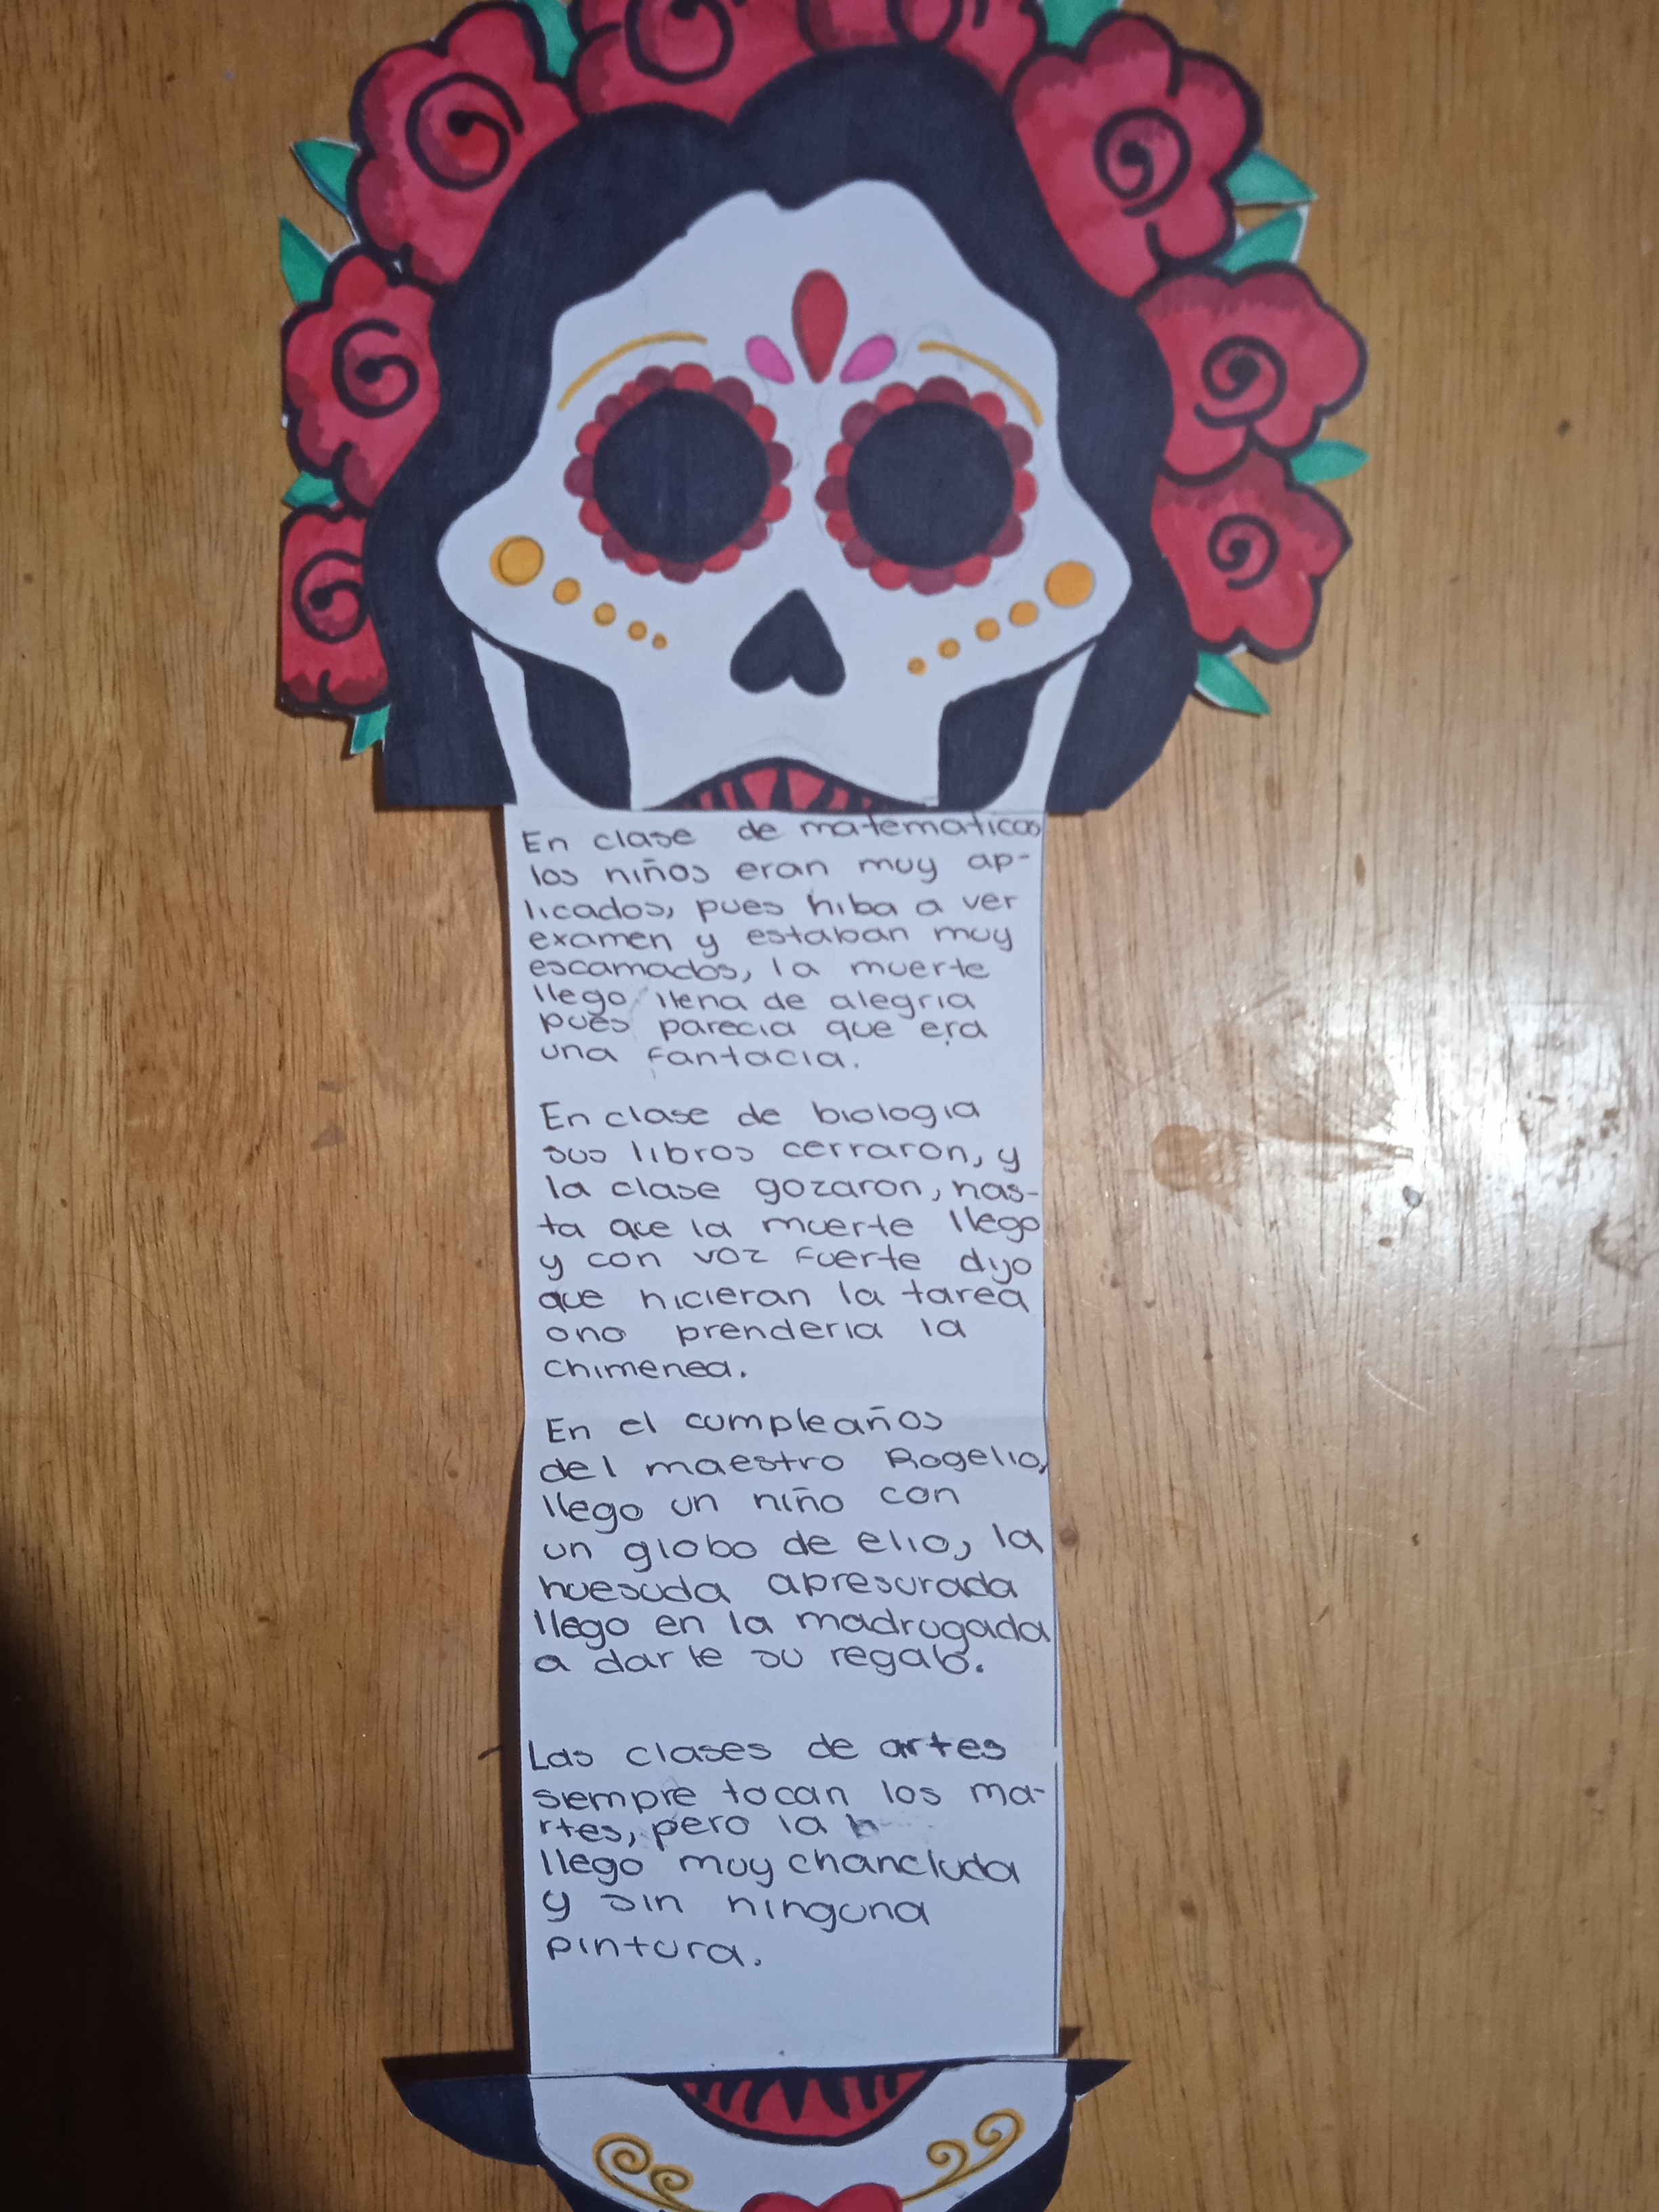 En clase de matematicas
los niños eran muy ap-
licados, pues hiba a ver
examen y estaban muy
escamados, la muerte
llego llena de alegria
pues parecia que era
una fantacia.
En clase de biologia
sus libros cerraron, y
la clase gozaron, has-
ta que la muerte llego
y con voz fuerte dijo
que hicieran la tarea
ono prenderia la
chimenea.
En el cumpleaños
del maestro Rogelio,
llego un niño con
un globo de elio, la
huesuda apresurada
llego en la madrugada
a darle su regalo.
Las clases de artes
siempre tocan los ma-
rtes, pero la
llego muy chancluda
y sin ninguna
pintura.